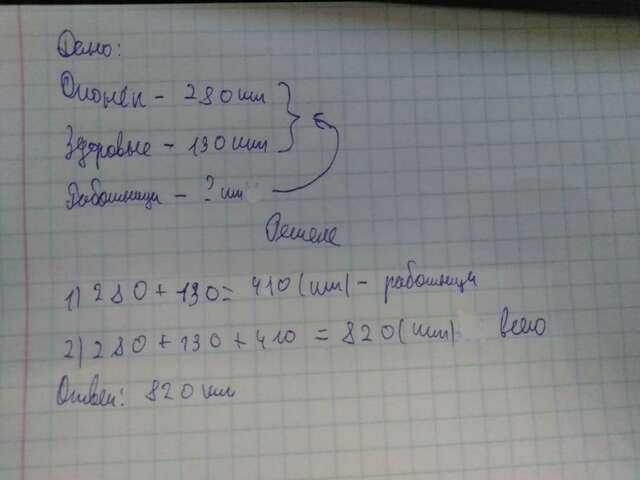 Дано:
Огонёк - 280 шт
Здоровье - 130 шт
Работница - ? шт
Решение
1) 280 + 130 = 410 (шт) - работница
2) 280 + 130 + 410 = 820 (шт) всего
Ответ: 820 шт